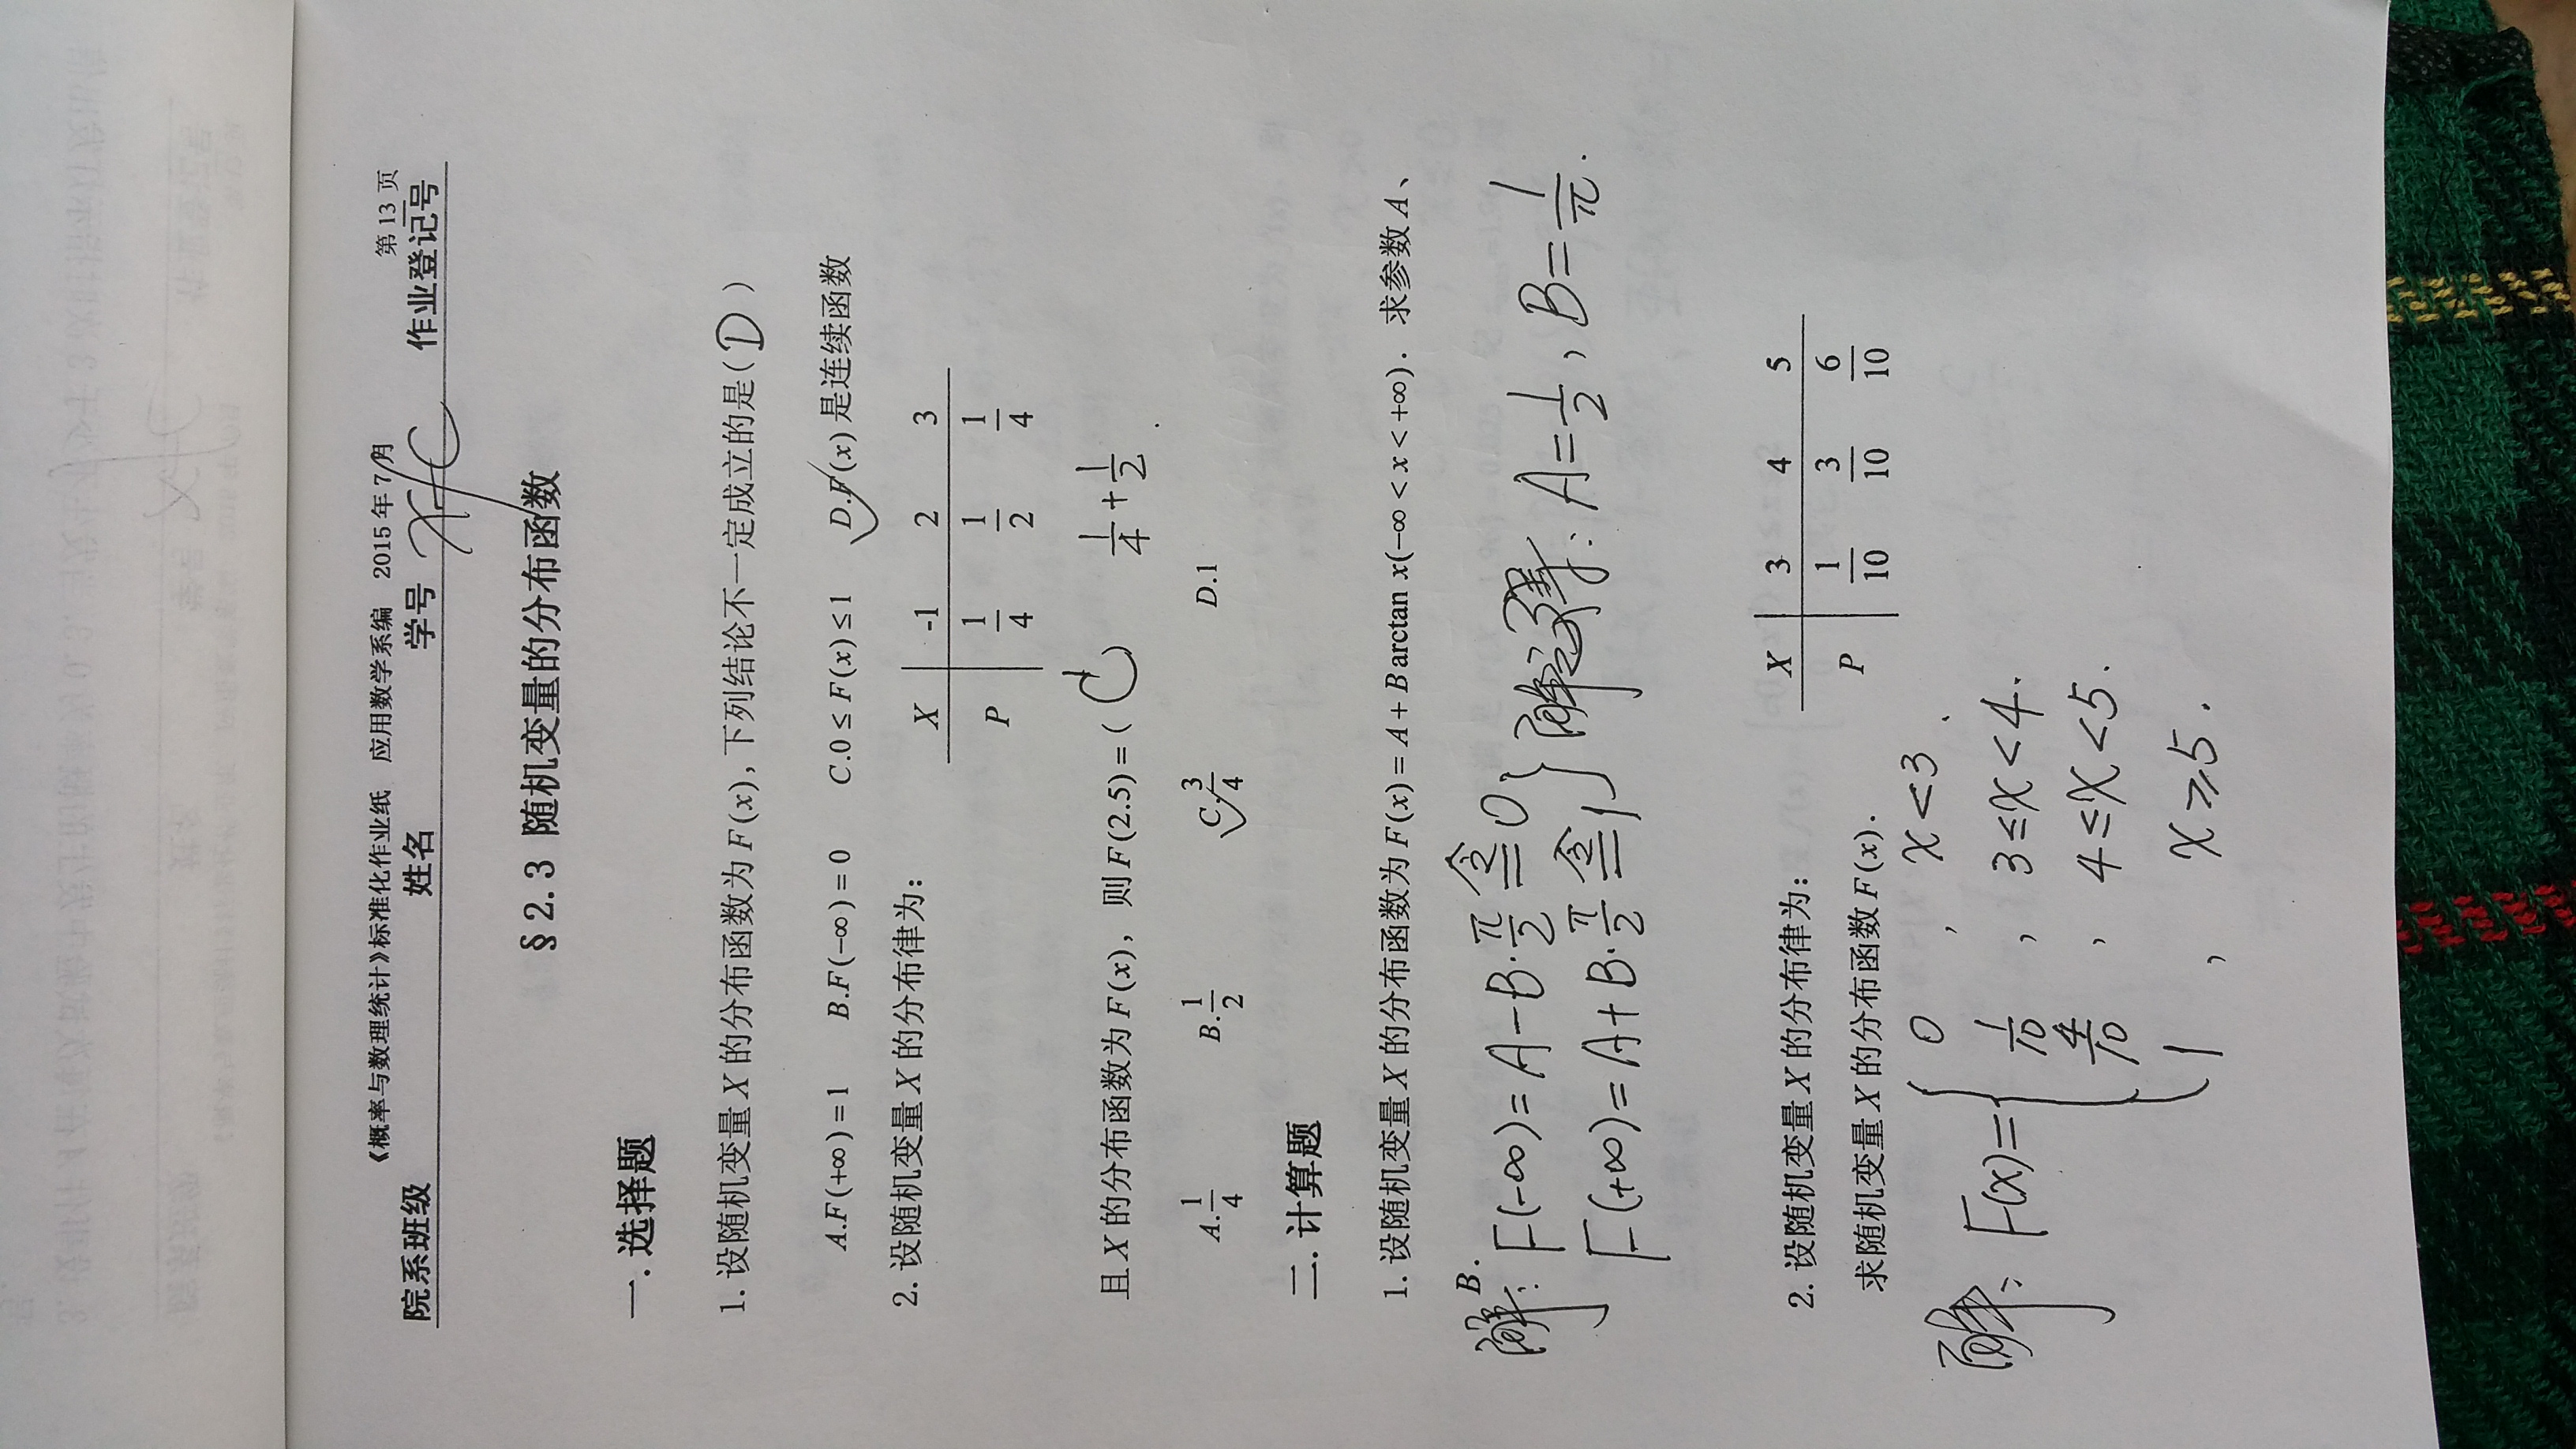 《概率与数理统计》标准化作业纸 应用数学系编 2015 年 7 月 第 13 页
院系班级 姓名 学号 作业登记号
§2.3 随机变量的分布函数
一.选择题
1.设随机变量 X 的分布函数为 F(x),下列结论不一定成立的是( D )
A.F(+∞)=1 B.F(-∞)=0 C.0≤F(x)≤1 D.F(x) 是连续函数
2.设随机变量 X 的分布律为:
X -1 2 3
P 1/4 1/2 1/4
且 X 的分布函数为 F(x), 则 F(2.5)=( C ) 1/4+1/2
A.1/4 B.1/2 C.3/4 D.1
二.计算题
1.设随机变量 X 的分布函数为 F(x)=A+B arctan x(-∞<x<+∞). 求参数 A、
B.
解: F(-∞)=A-B·π/2 令= 0
F(+∞)=A+B·π/2 令= 1 } 解之得: A=1/2, B=1/π.
2.设随机变量 X 的分布律为:
X 3 4 5
P 1/10 3/10 6/10
求随机变量 X 的分布函数 F(x).
解: F(x)= { 0 , x<3.
1/10 , 3≤x<4.
4/10 , 4≤x<5.
1 , x≥5.